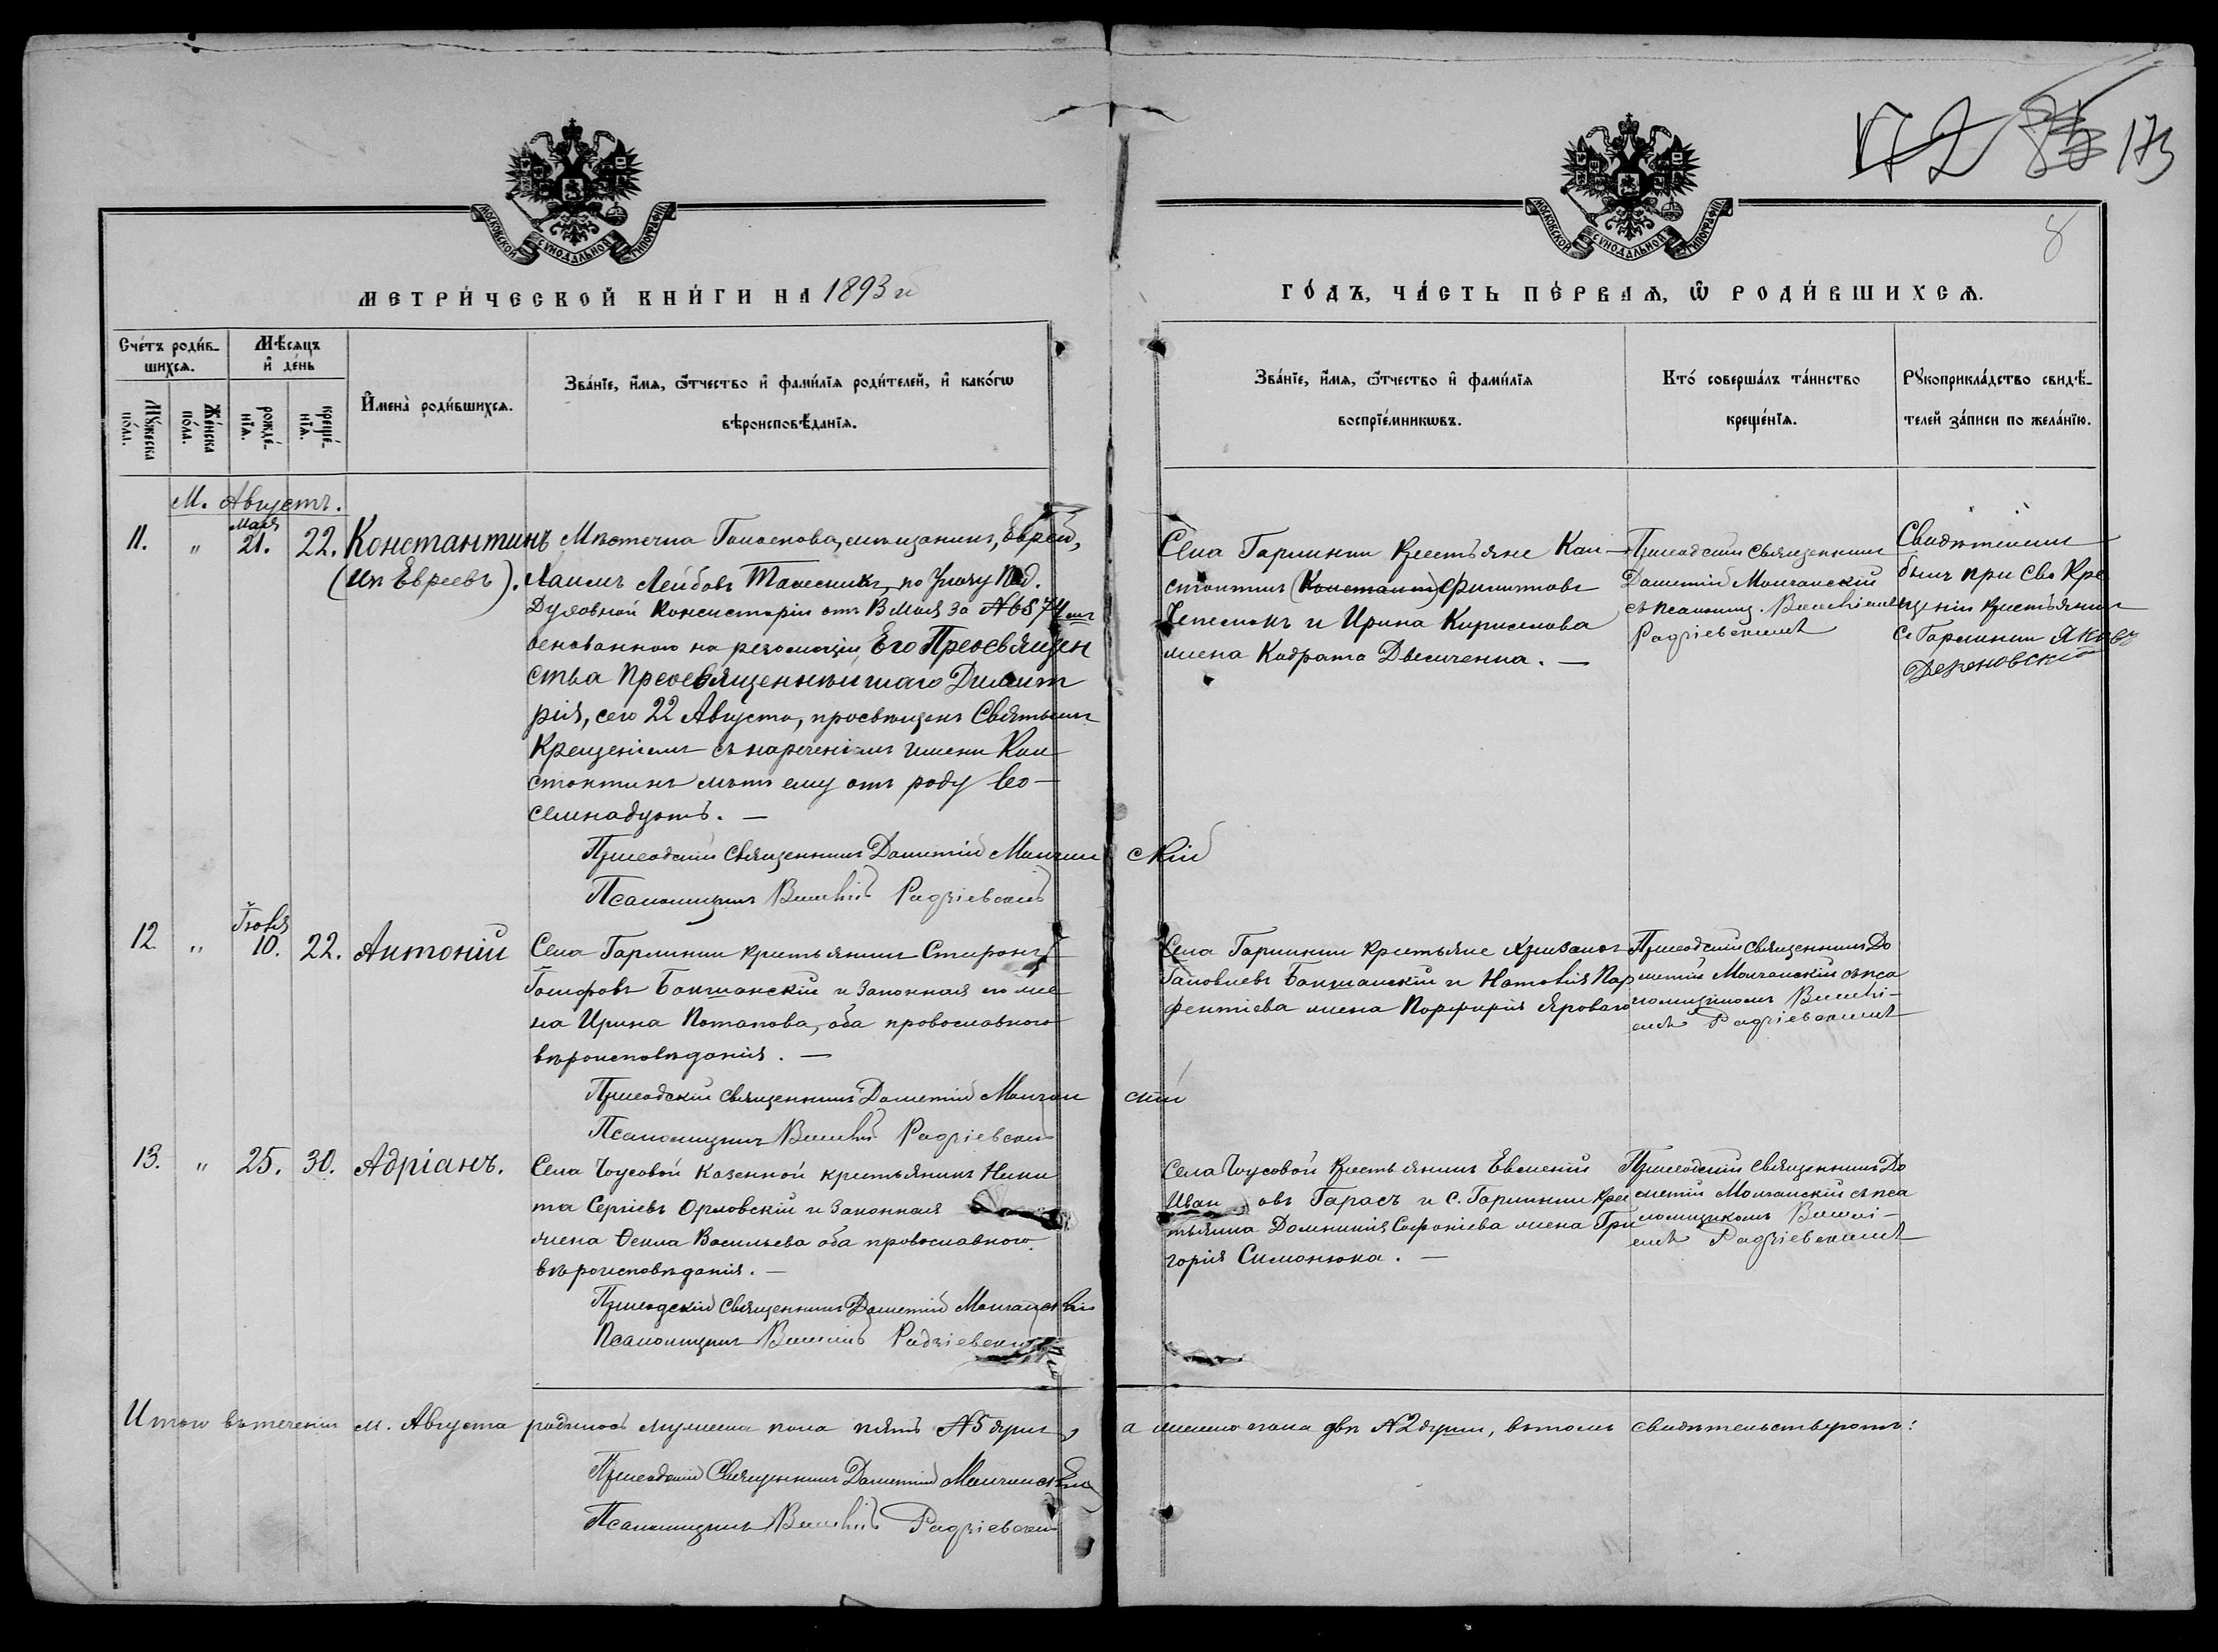 172 173
8
МОСКОВСКОЙ СѴНОДАЛЬНОЙ ТИПОГРАФІИ
МОСКОВСКОЙ СѴНОДАЛЬНОЙ ТИПОГРАФІИ
МЕТРИ́ЧЕСКОЙ КНИ́ГИ НА 1893 й
ГО́ДЪ, ЧА́СТЬ ПЕ́РВАѦ, Ѽ РОДИ́ВШИХСѦ.
Сче́тъ роди́в-
шихсѧ.
Мѣ́сѧцъ
и҆ де́нь
Мꙋ́жеска по́ла.
Же́нска по́ла.
рожде́-нїѧ.
креще́-нїѧ.
И҆мена̀ роди́вшихсѧ.
Зва́нїе, и҆́мѧ, ѻ҆́тчество и҆ фами́лїѧ роди́телей, и҆ како́гѡ
вѣроисповѣ́данїѧ.
Зва́нїе, и҆́мѧ, ѻ҆́тчество и҆ фами́лїѧ
воспрїе́мникѡвъ.
Кто́ соверша́лъ та́инство
креще́нїѧ.
Рꙋкоприкла́дство свидѣ́-
телей за́писи по жела́нїю.
М. Августъ.
11. " Мая 21. 22. Константинъ
(изъ Евреевъ).
Мѣстечка Голоскова, мѣщанинъ, Еврей,
Хаимъ Лейбовъ Талесникъ, по Указу Под.
Духовной Консисторіи отъ 3 Мая за №6874 мъ
основанного на резолюціи, Его Преосвящен
ства Преосвященнѣйшаго Димит
рія, сего 22 Августа, просвѣщенъ Святымъ
Крещеніемъ съ нареченіемъ имени Кон
стантинъ лѣтъ ему отъ роду во-
семнадцать. —
Приходскій Священникъ Дометій Молчанскій
Псаломщикъ Радзіевскій
Села Гармаки Крестьяне Кон-
стантинъ (Константи) Филиповъ
Чепелюкъ и Ирина Кириллова
жена Кодрата Двеличенка. —
Приходскій Священникъ
Дометій Молчанскій
съ псаломщ.
Радзіевскимъ
Свидѣтелемъ
былъ при Св. Кре
щеніи крестьянинъ
с. Гармаки Яковъ
12 " Іюля 10. 22. Антоній
Села Гармаки крестьянинъ Спиронъ
Іосифовъ Бокшанскій и законная его же
на Ирина Потапова, оба православного
вѣроисповѣданія. —
Приходскій Священникъ Дометій Молчанскій
Псаломщикъ Радзіевскій
Села Гармаки крестьяне
Іаковлевъ Бокшанскій и Наталія Пар
фентіева жена Порфирія Ярового
Приходскій Священникъ До
метій Молчанскій съ пса
ломщикомъ
Радзіевскимъ
13. " 25. 30. Адріанъ.
Села Чоусовой Казенной крестьянинъ Ники
та Сергіевъ Орловскій и законная
жена Ѳекла Васильева оба православного
вѣроисповѣданія. —
Приходскій Священникъ Дометій Молчанскій
Псаломщикъ Радзіевскій
Села Чоусовой Крестьянинъ Евменій
Ивановъ Тарасъ и с. Гармаки Крес
тьянка Домникія Софоніева жена Гри
горія Симонюка. —
Приходскій Священникъ До
метій Молчанскій съ пса
ломщикомъ
Радзіевскимъ
Итого въ теченіи м. Августа родилось мужеска пола пять №5 душъ, а женско пола двѣ №2 души, въ томъ свидѣтельствуютъ:
Приходскій Священникъ Дометій Молчанскій
Псаломщикъ Радзіевскій